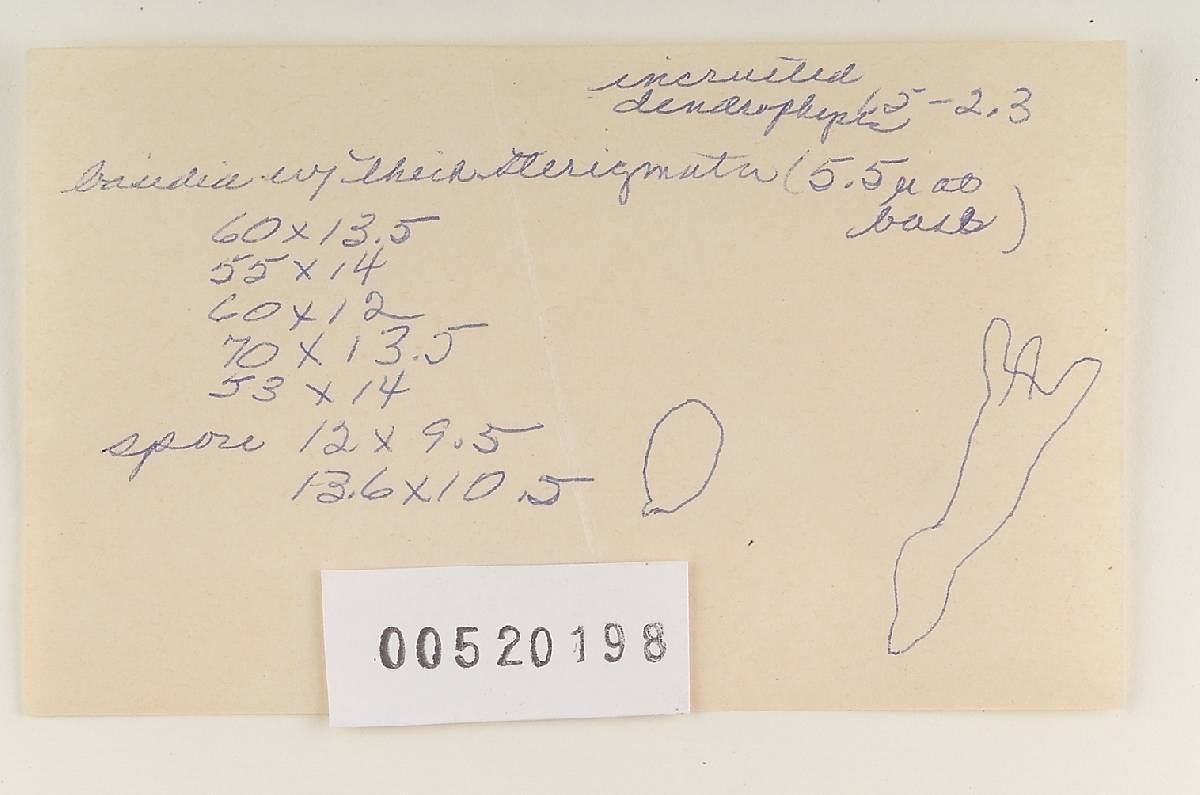 incrusted
dendrophyses 1.5-2.3
basidia w/ thick sterigmata (5.5µ at
base)
60 x 13.5
55 x 14
60 x 12
70 x 13.5
53 x 14
spore 12 x 9.5
13.6 x 10.5
00520198